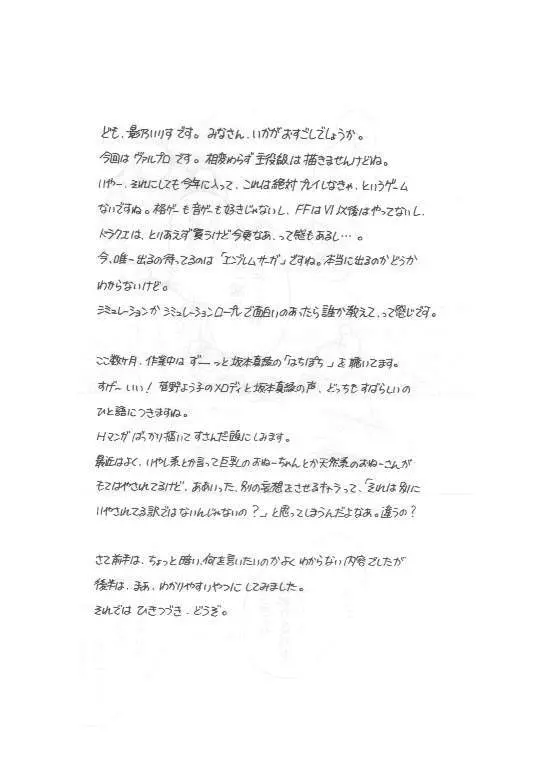 ども、影乃いりす です。みなさん、いかがおすごしでしょうか。
今回は ヴァルプロ です。相変わらず主役級は描きませんけどね。
いやー、それにしても今年に入って、これは絶対プレイしなきゃ、というゲーム
ないですね。格ゲーも音ゲーも好きじゃないし、FFはVI以後はやってないし、
ドラクエは、とりあえず買うけど今更なあ、って感もあるし…。
今、唯一出るの待ってるのは「エンブレムサーガ」ですね。本当に出るのかどうか
わからないけど。
シミュレーションか シミュレーションロープレで面白いのあったら誰か教えて、って感じです。
ここ数ヶ月、作業中は ずーっと坂本真綾の「はちぽち」を聴いてます。
すげーいい! 菅野よう子のメロディと坂本真綾の声、どっちもすばらしいの
ひと語につきますね。
Hマンガばっかり描いてすさんだ頭にしみます。
最近はよく、いやし系とか言って巨乳のおねーちゃんとか天然系のおねーさんが
もてはやされてるけど、ああいった、別の妄想をさせるキャラって、「それは別に
いやされてる訳ではないんじゃないの?」と思ってしまうんだよなあ。違うの?
さて前半は、ちょっと暗い、何を言いたいのかよくわからない内容でしたが
後半は、まあ、わかりやすいやつに してみました。
それでは ひきつづき、どうぞ。